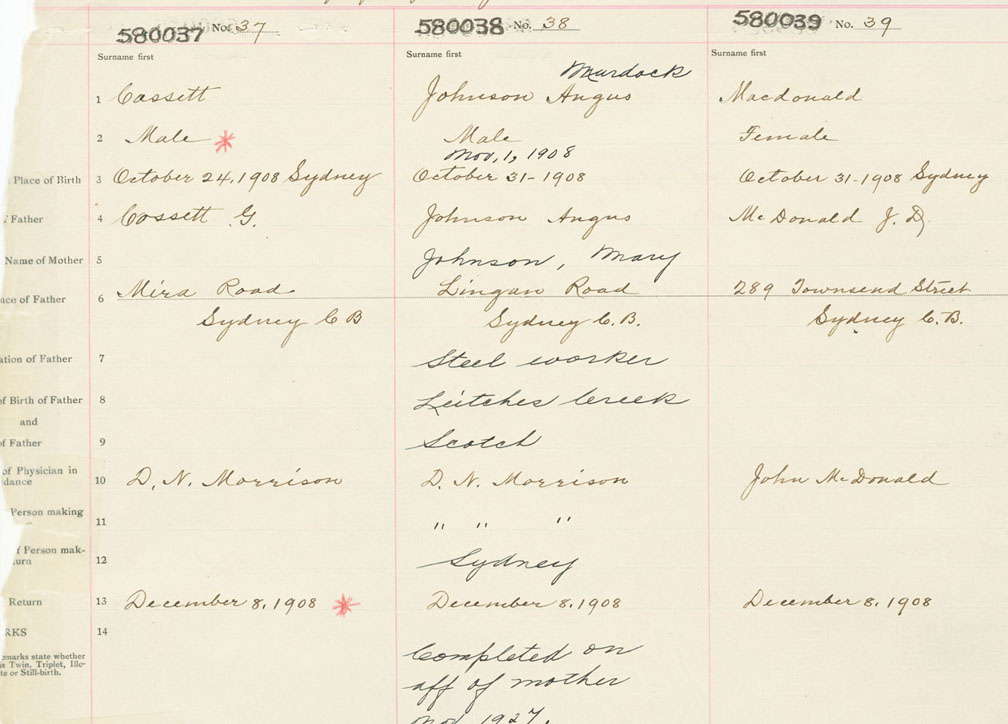 580037 No. 37
580038 No. 38
580039 No. 39
Surname first
Surname first
Surname first
Murdock
1 Cossett
Johnson Angus
Macdonald
2 Male *
Male
Female
Nov, 1, 1908
Place of Birth 3 October 24, 1908 Sydney
October 31-1908
October 31-1908 Sydney
Father 4 Cossett G.
Johnson Angus
McDonald J. D.
Name of Mother 5
Johnson, Mary
ce of Father 6 Mira Road
Lingan Road
289 Townsend Street
Sydney C B
Sydney C.B.
Sydney C.B.
ation of Father 7
Steel worker
of Birth of Father 8
Leitches Creek
and
of Father 9
Scotch
of Physician in
dance 10 D. N. Morrison
D. N. Morrison
John McDonald
Person making
11
" " "
f Person mak-
turn 12
Sydney
Return 13 December 8, 1908 *
December 8, 1908
December 8, 1908
RKS 14
emarks state whether
is Twin, Triplet, Ille-
te or Still-birth.
Completed on
aff of mother
Nov 1927.